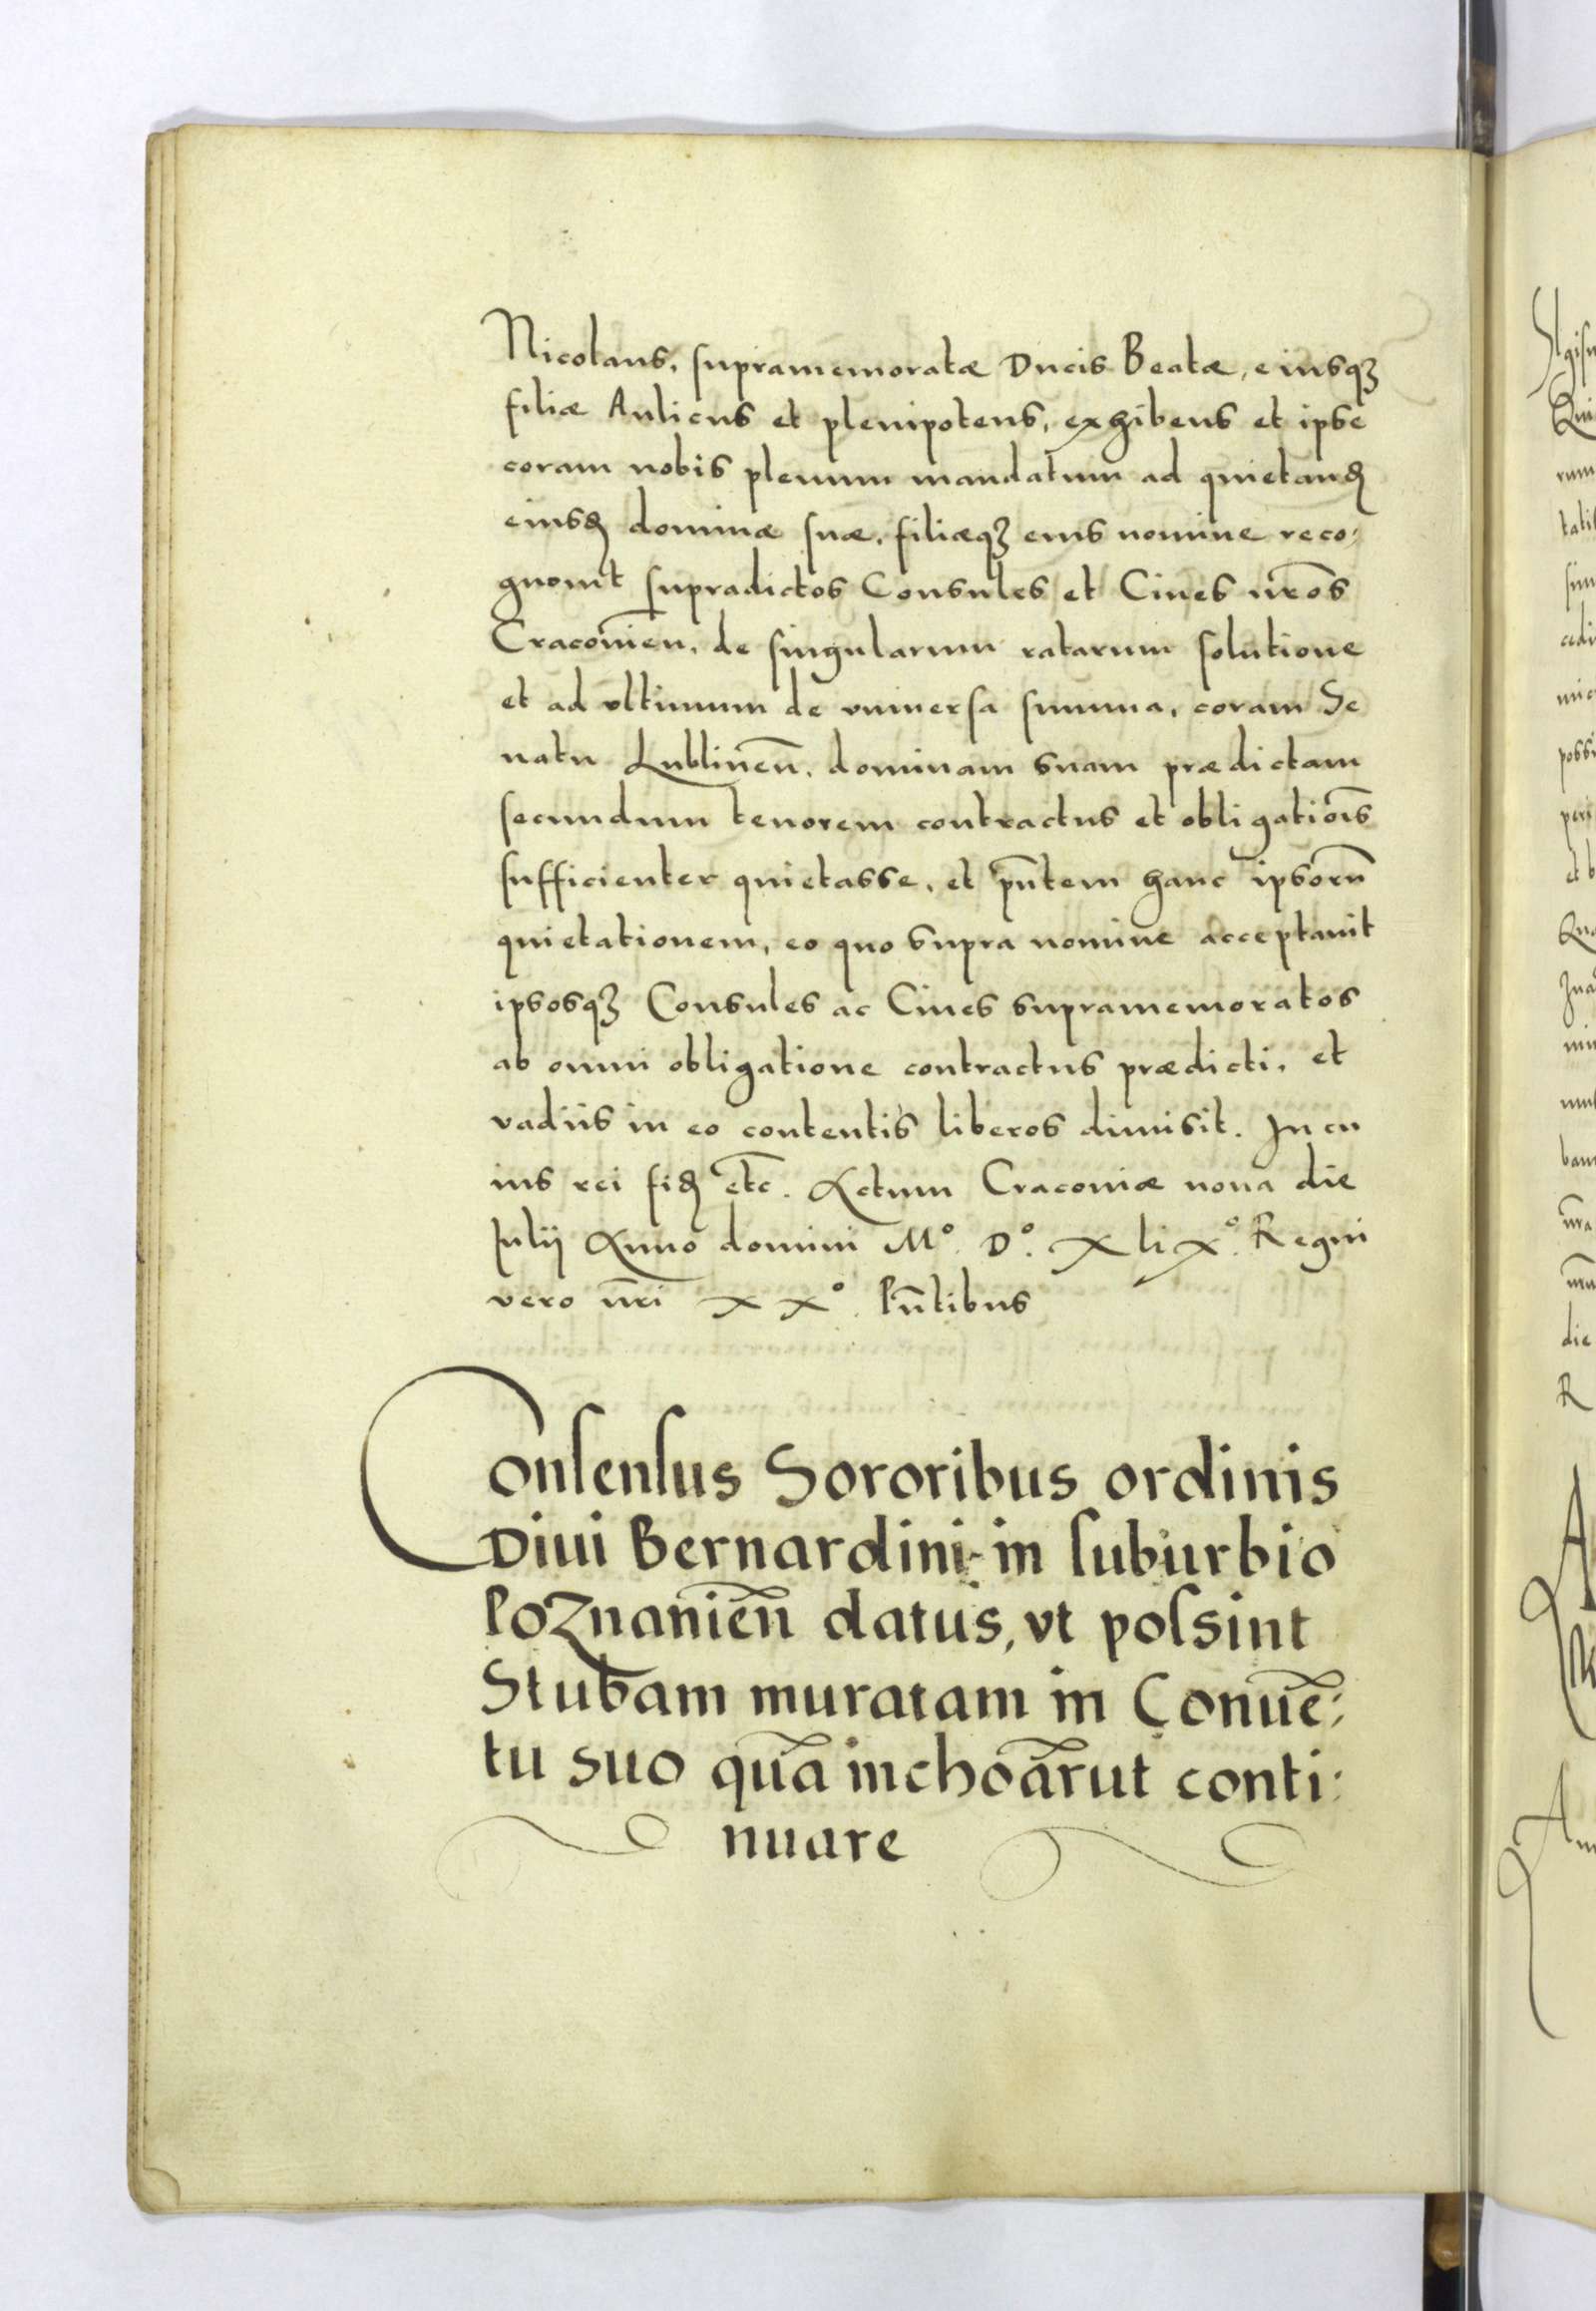 Nicolaus, supramemoratæ Ducis Beatæ, eiusqꝫ
filiæ Aulicus et plenipotens, exhibens et ipse
coram nobis plenum mandatum ad quietandꝫ
eiusdꝫ dominæ suæ, filiæqꝫ eius nomine reco:
gnouit supradictos Consules et Ciues nr̃os
Cracouien̄, de singularum ratarum solutione
et ad vltimum de vniuersa summa, coram Se
natu Lublinen̄, dominam suam prædictam
secundum tenorem contractus et obligatiōis
sufficienter quietasse, et pn̄tem hanc ipsorū
quietationem, eo quo supra nomine acceptauit
ipsosqꝫ Consules ac Ciues supramemoratos
ab omni obligatione contractus prædicti, et
vadiis in eo contentis liberos dimisit. In cu
ius rei fidꝫ etc̄. Actum Cracouiæ nona die
Iulij Anno domini M°. D°. XliX°. Regni
vero nr̄i XX°. Pn̄tibus
Consensus Sororibus ordinis
Diui Bernardini in suburbio
Poznanien̄ datus, vt possint
Stubam muratam in Conuē:
tu suo quā inchoārut conti:
nuare